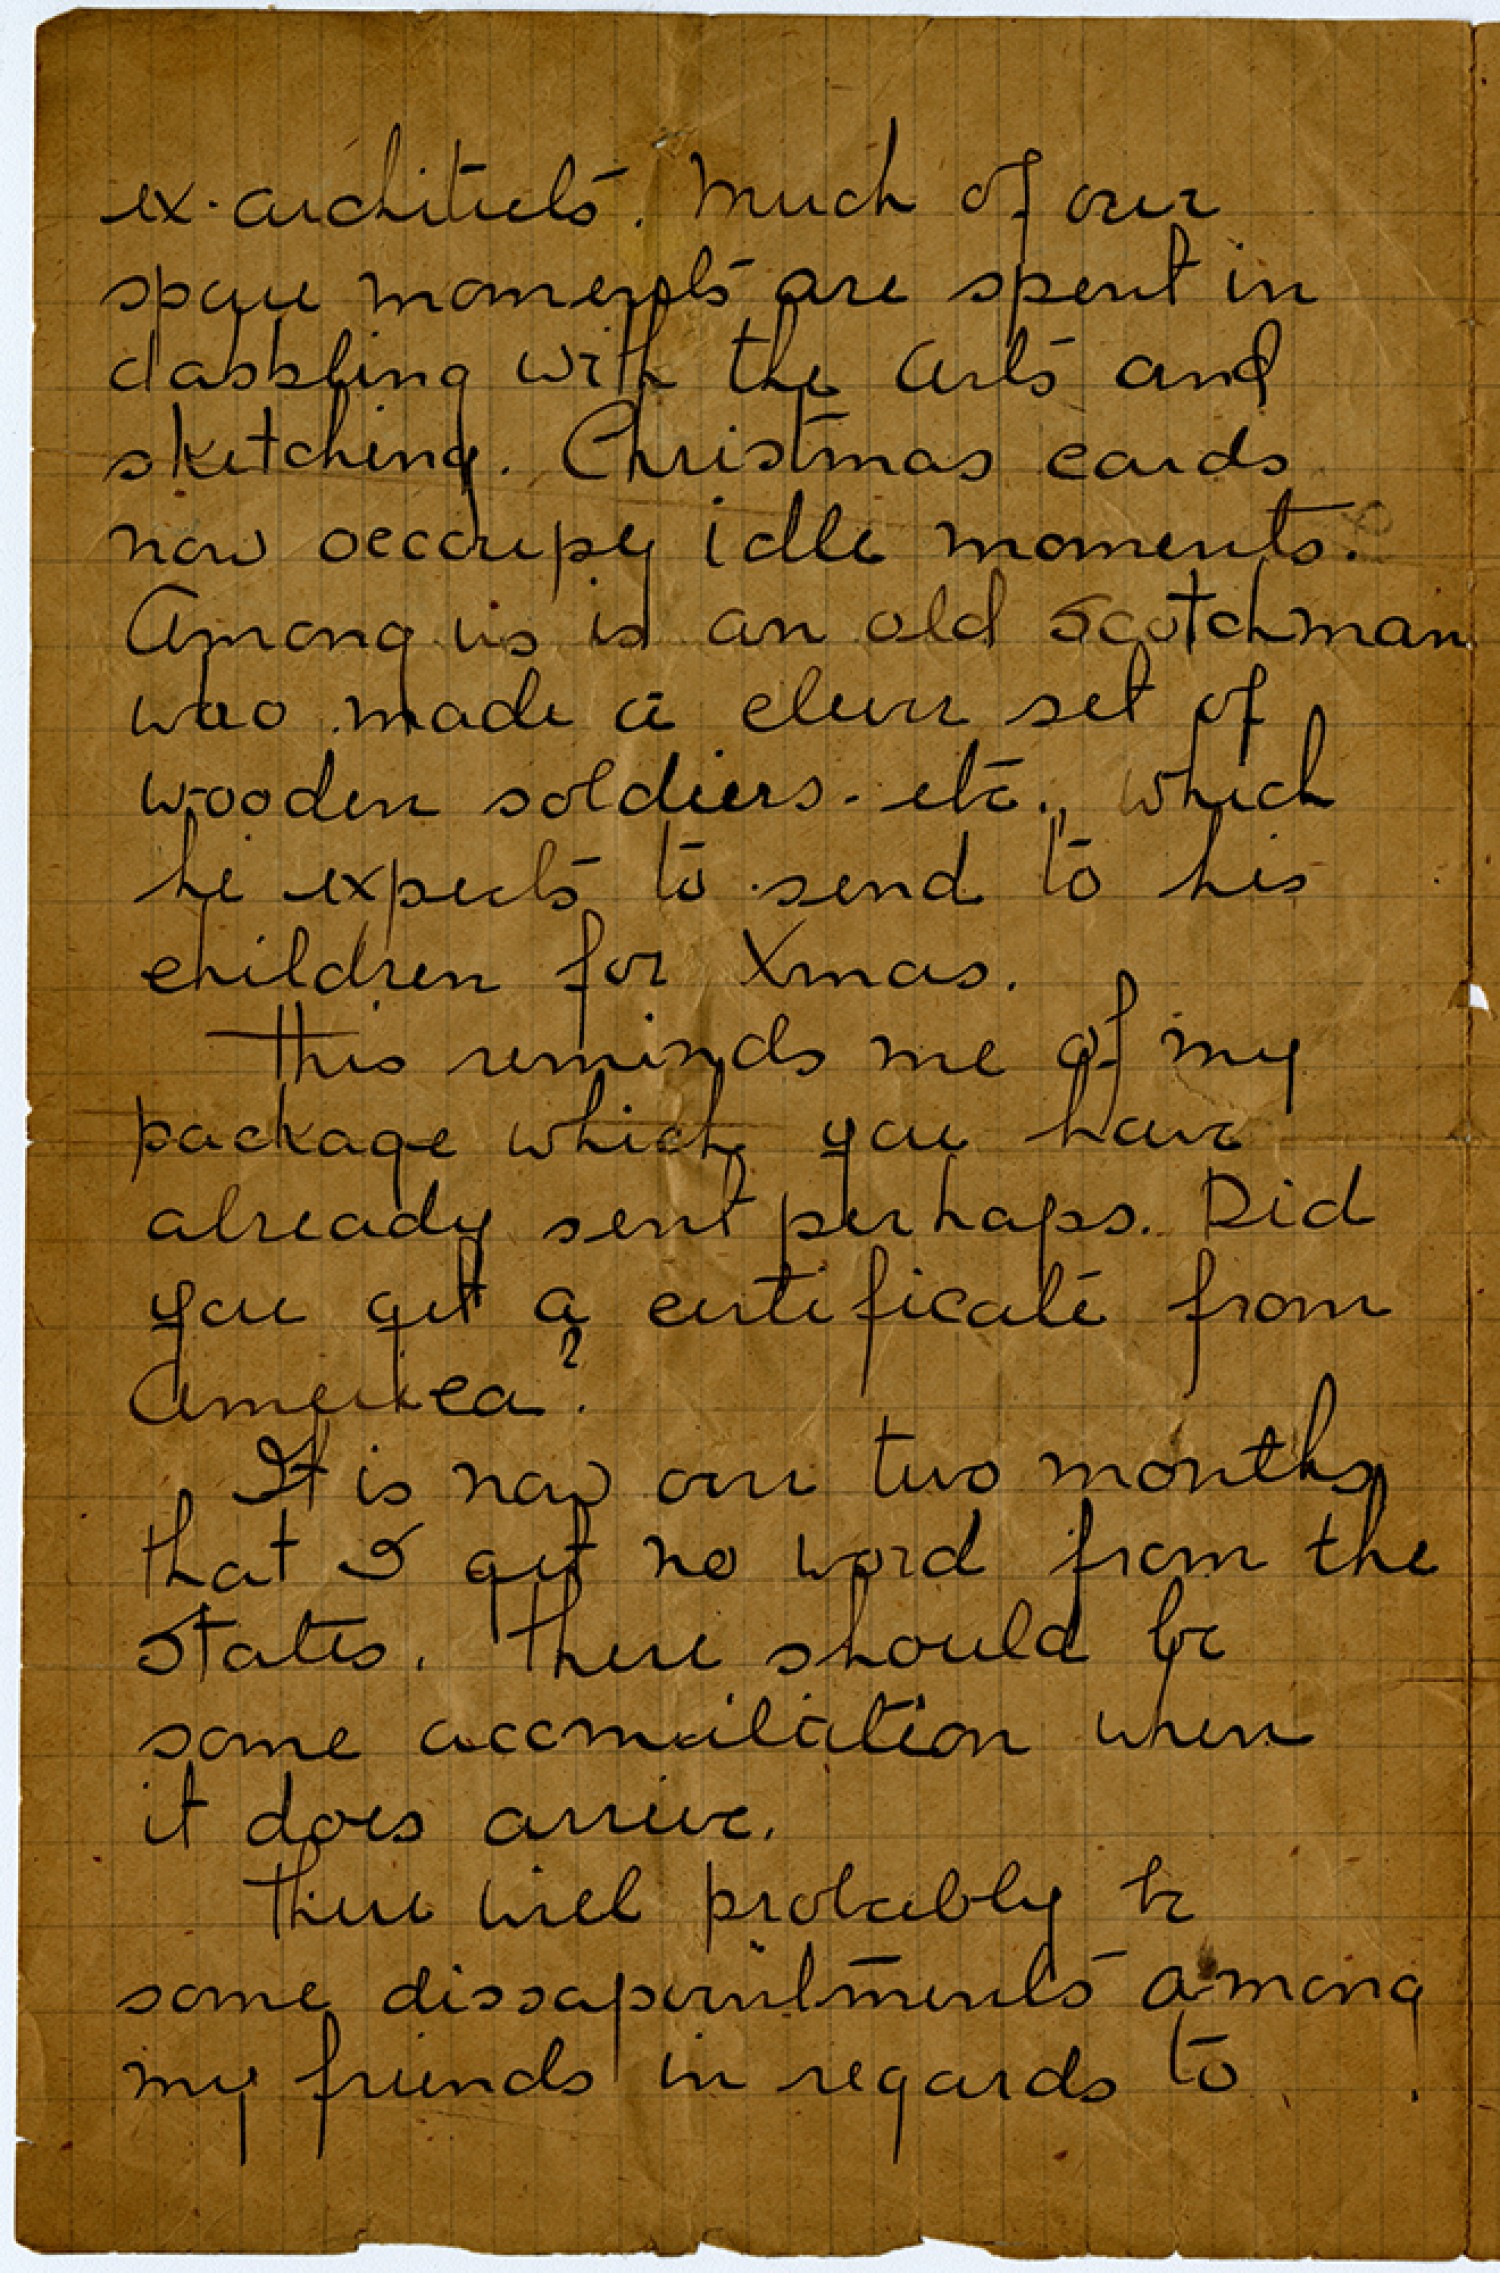 ex-architects. Much of our
spare moments are spent in
dabbling with the arts and
sketching. Christmas cards
now occupy idle moments.
Among us is an old Scotchman
who made a clever set of
wooden soldiers - etc., which
he expects to send to his
children for Xmas.
This reminds me of my
package which you have
already sent perhaps. Did
you get a certificate from
America?
It is now over two months
that I get no word from the
States. There should be
some accmulation when
it does arrive.
There will probably be
some dissapointments among
my friends in regards to